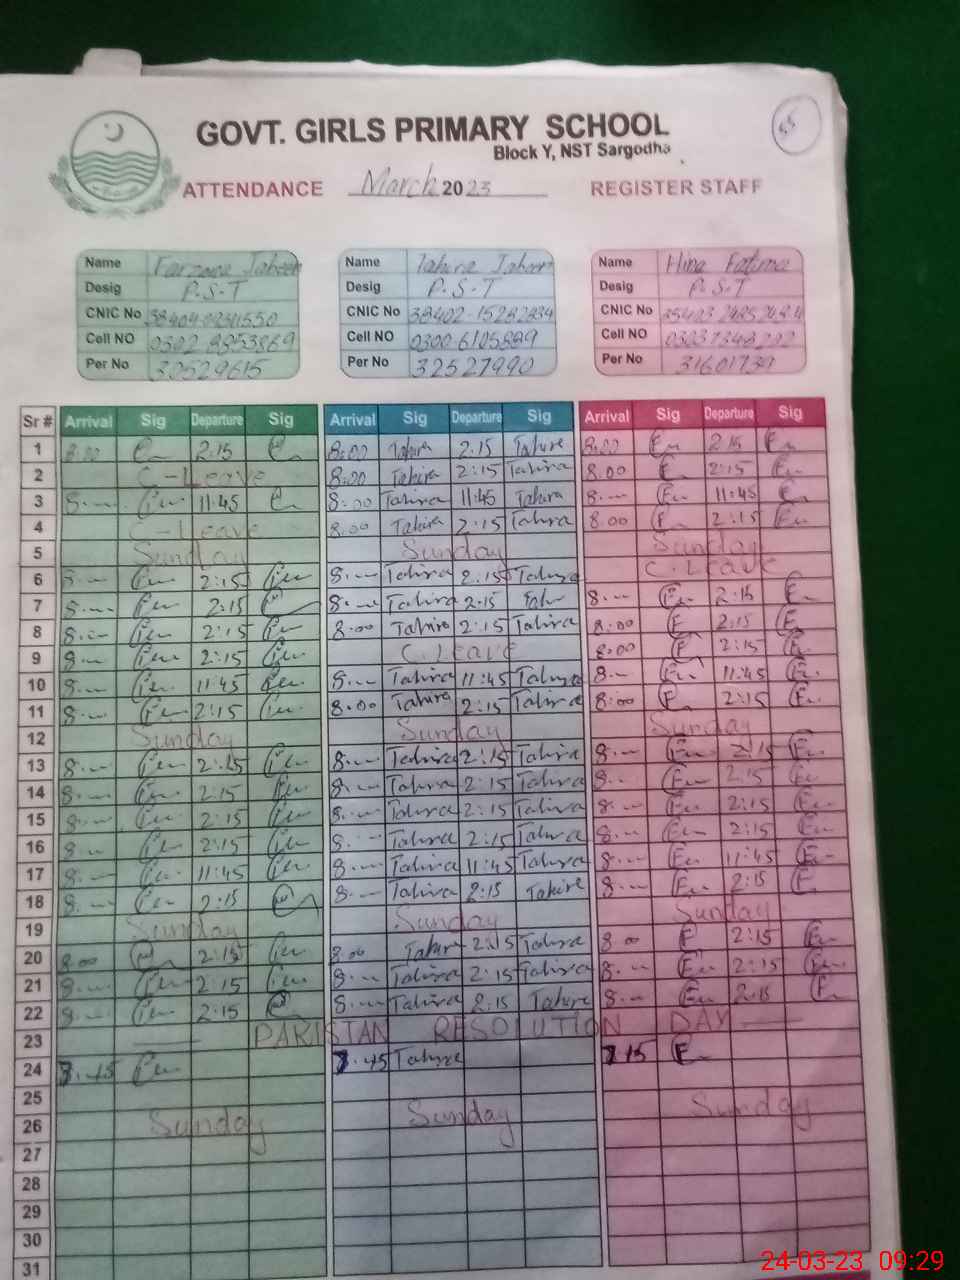 GOVT. GIRLS PRIMARY SCHOOL
55
Block Y, NST Sargodha
ATTENDANCE March 2023 REGISTER STAFF
Name Farzana Jabeen Name Tahira Jabeen Name Hina Fatima
Desig P.S.T Desig P.S.T Desig P.S.T
CNIC No CNIC No 38402-15282834 CNIC No
Cell NO Cell NO 0300 6105889 Cell NO
Per No 30529615 Per No 32527990 Per No 31601739
Sr # Arrival Sig Departure Sig Arrival Sig Departure Sig Arrival Sig Departure Sig
1 8.00 2.15 8:00 Tahira 2.15 Tahira 8.00 2.15
2 C-Leave 8:00 Tahira 2:15 Tahira 8.00 2:15
3 8.— 11:45 8:00 Tahira 11:45 Tahira 8.— 11:45
4 C-Leave 8.00 Tahira 2:15 Tahira 8.00 2:15
5 Sunday Sunday Sunday
6 8.— 2:15 8.— Tahira 2:15 Tahira C.Leave
7 8.— 2:15 8.— Tahira 2:15 8.— 2:15
8 8.— 2:15 8:00 Tahira 2:15 Tahira 8:00 2:15
9 8.— 2:15 C.Leave 8:00 2:15
10 8.— 11:45 8.— Tahira 11:45 Tahira 8.— 11:45
11 8.— 2:15 8.00 Tahira 2:15 Tahira 8:00 2:15
12 Sunday Sunday Sunday
13 8.— 2:15 8.— Tahira 2:15 Tahira 8.— 2:15
14 8.— 2:15 8.— Tahira 2:15 Tahira 8.— 2:15
15 8.— 2:15 8.— Tahira 2:15 Tahira 8.— 2:15
16 8.— 2:15 8.— Tahira 2:15 Tahira 8.— 2:15
17 8.— 11:45 8.— Tahira 11:45 Tahira 8.— 11:45
18 8.— 2:15 8.— Tahira 2:15 Tahira 8.— 2:15
19 Sunday Sunday Sunday
20 8.00 2:15 8.00 Tahira 2:15 Tahira 8.00 2:15
21 8.— 2:15 8.— Tahira 2:15 Tahira 8.— 2:15
22 8.— 2:15 8.— Tahira 2:15 Tahira 8.— 2:15
23 PAKISTAN RESOLUTION DAY
24 7.45 7.45 Tahira 7.15
25
26 Sunday Sunday Sunday
27
28
29
30
31
24-03-23 09:29